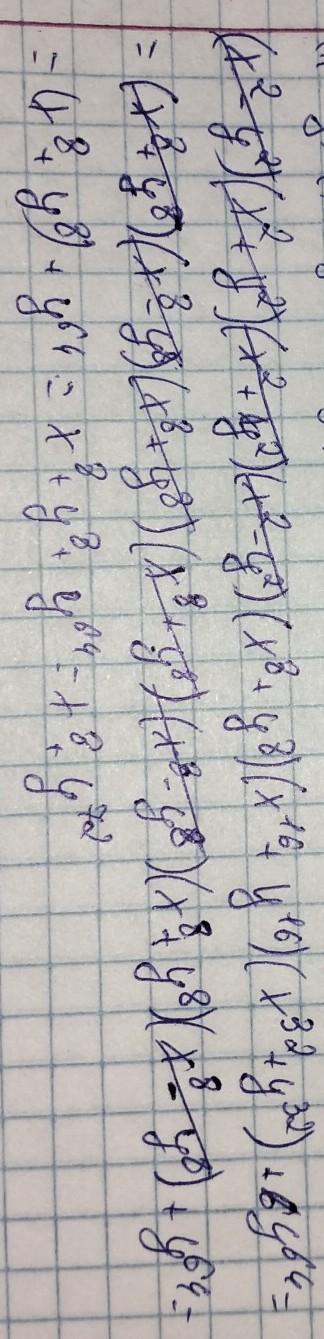 (x² - y²)(x² + y²)(x² + y²)(x² - y²)(x⁸ + y⁸)(x¹⁶ + y¹⁶)(x³² + y³²) + y⁶⁴ =
= (x⁸ + y⁸)(x⁸ - y⁸)(x⁸ + y⁸)(x⁸ + y⁸)(x⁸ - y⁸)(x⁸ + y⁸)(x⁸ - y⁸) + y⁶⁴ =
= (x⁸ + y⁸) + y⁶⁴ = x⁸ + y⁸ + y⁶⁴ = x⁸ + y⁷²